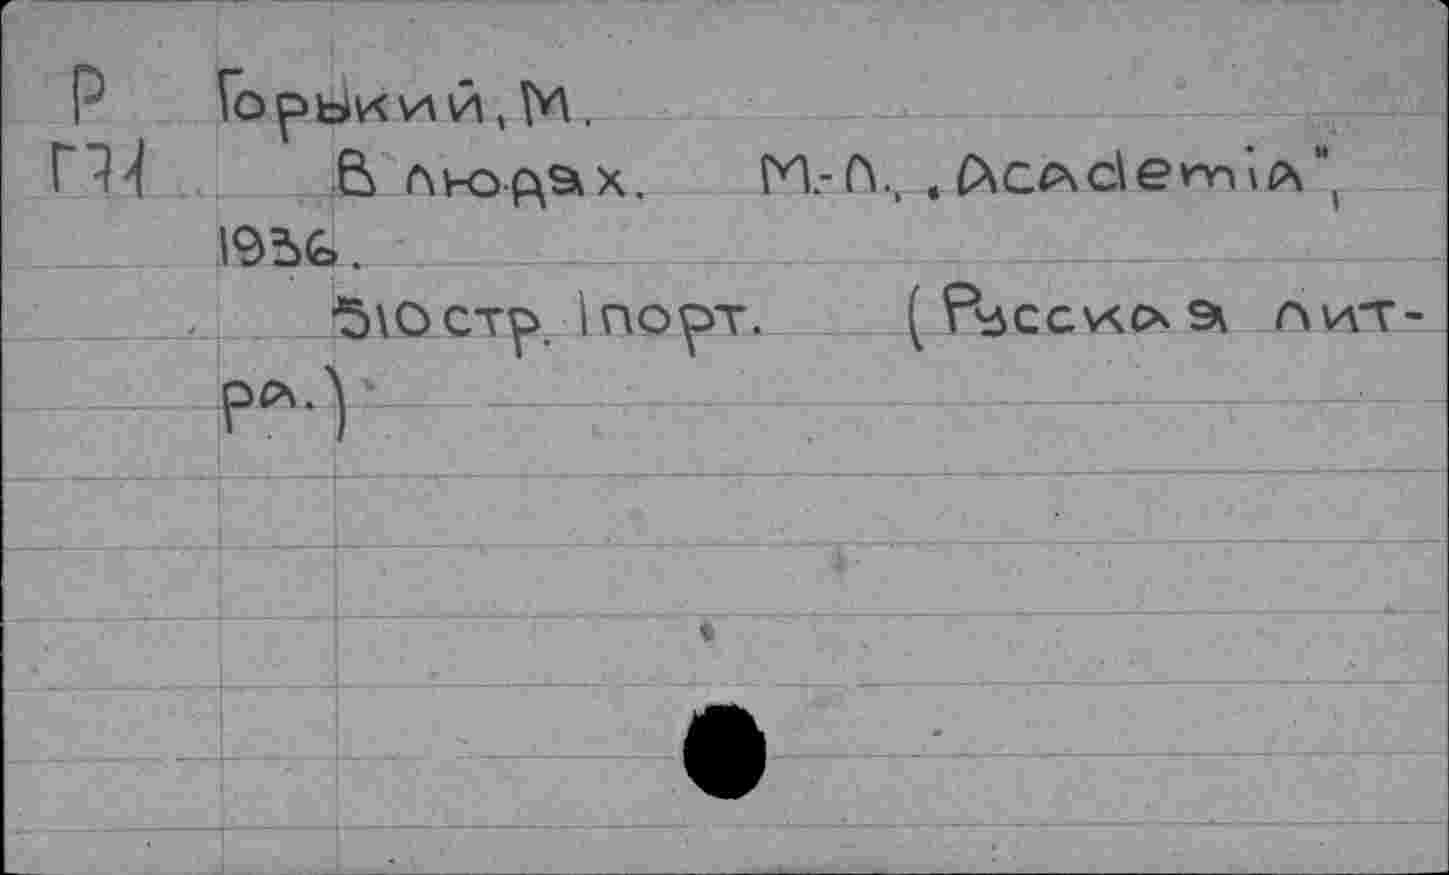 Р Горький, М.
Г71 В людях. М.-Л., „Academia",
1936.
510 стр. 1 порт. (Русская лит-
ра.)